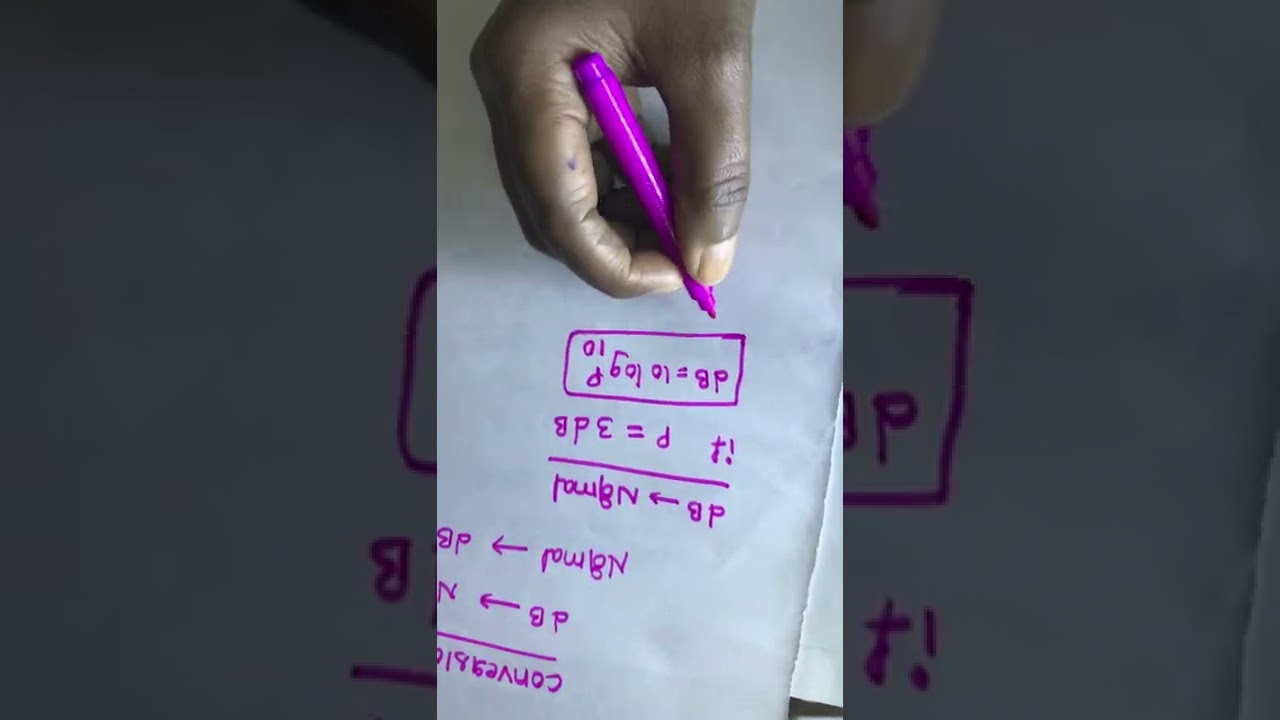 Conversio
dB → N
Normal → dB
dB → Normal
if P = 3dB
dB = 10 log P 10